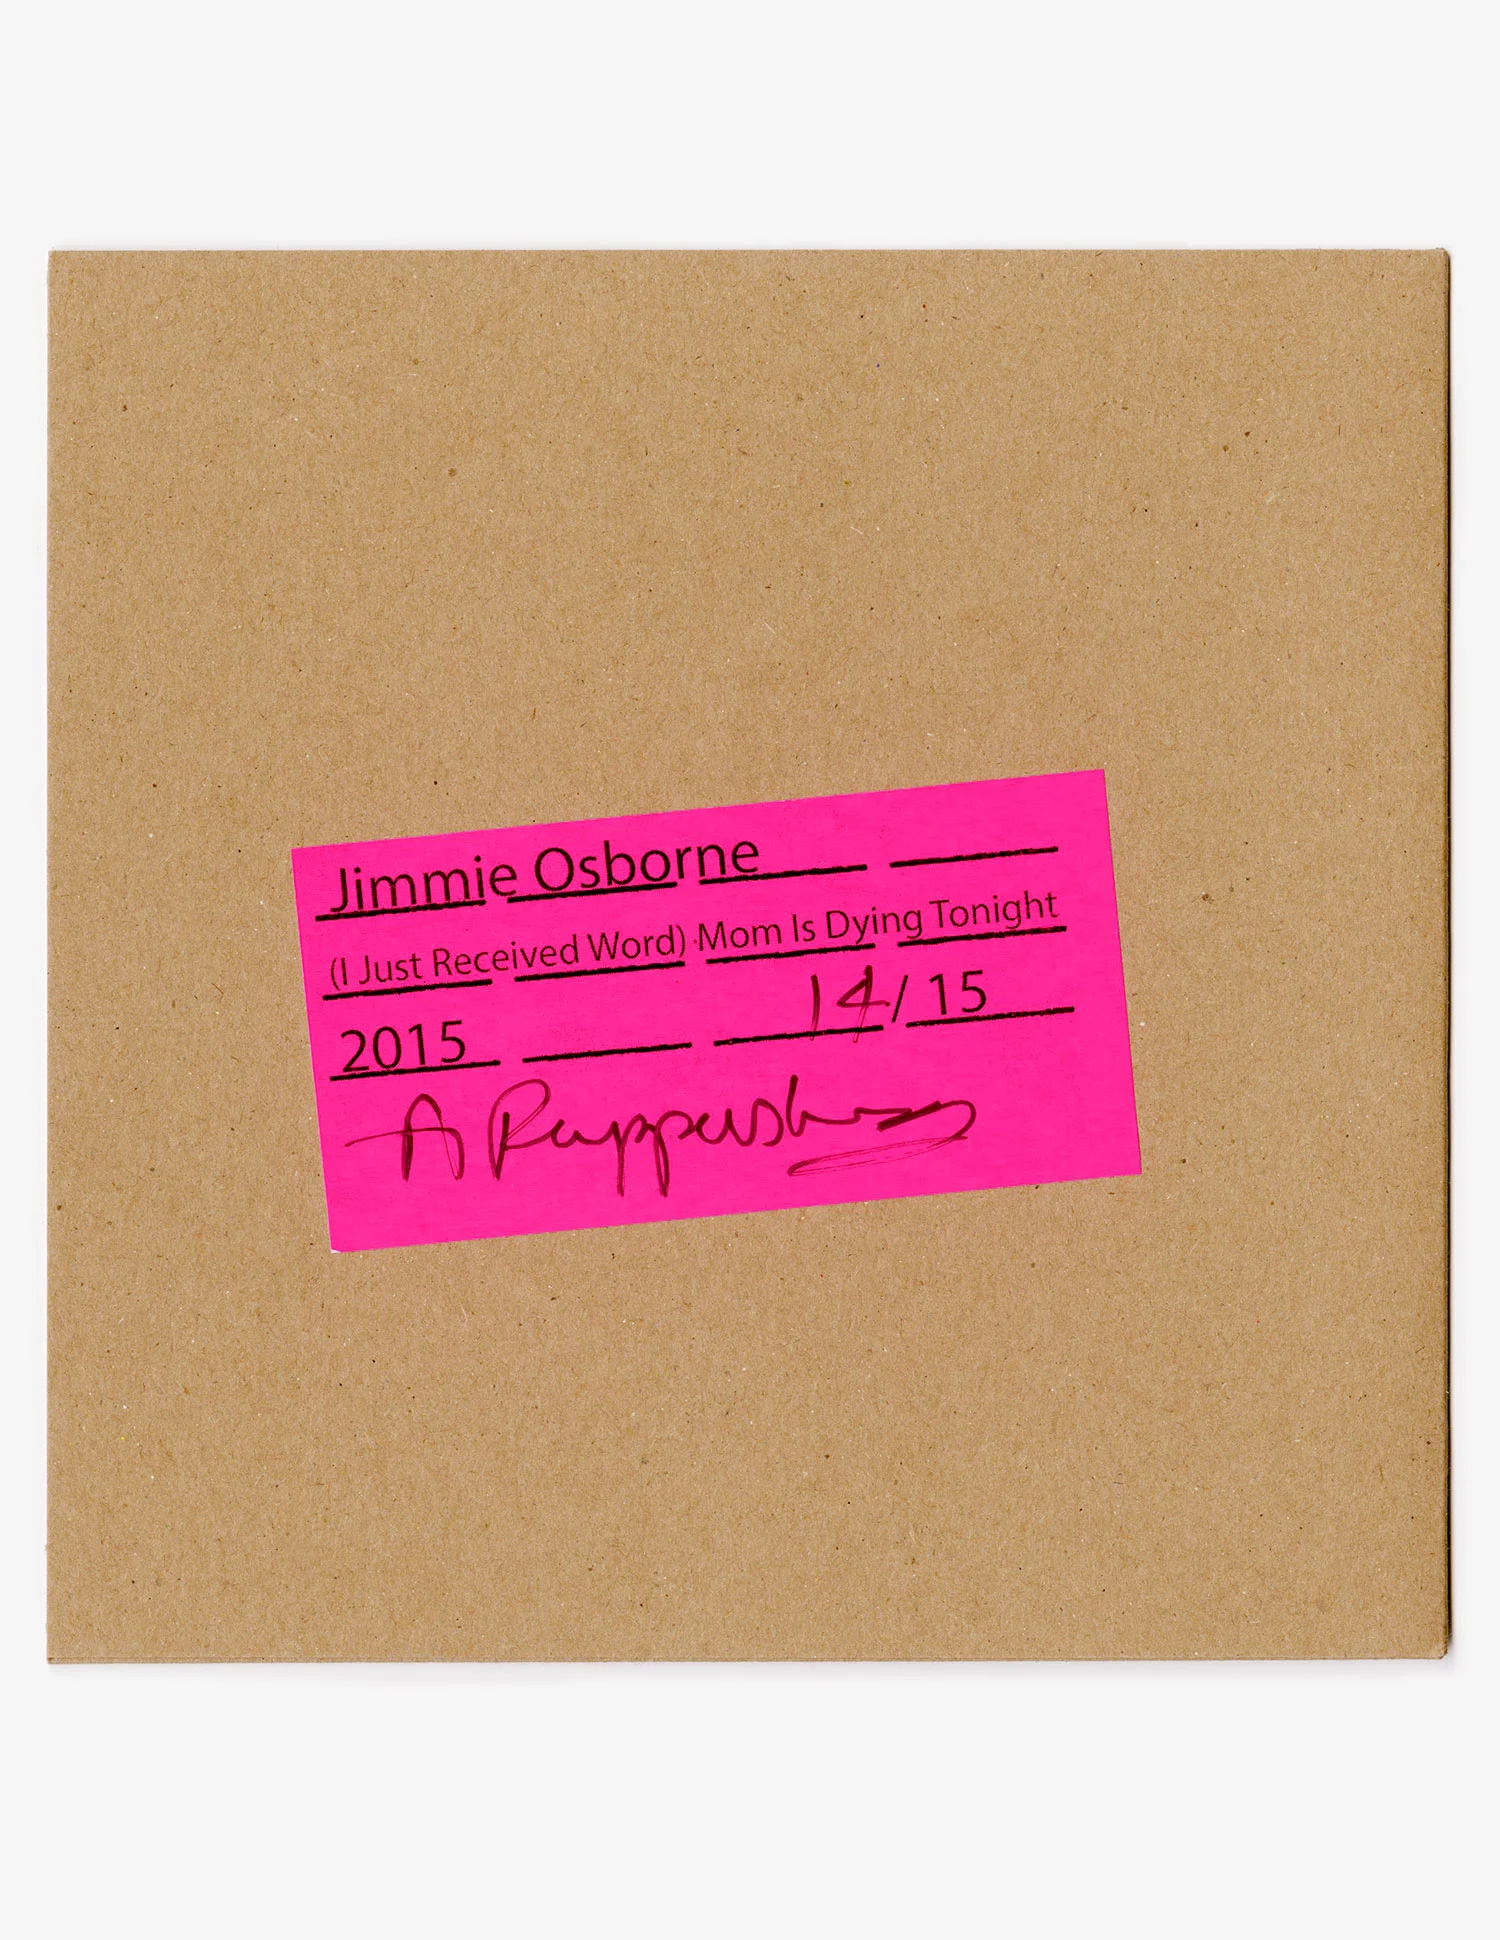 Jimmie Osborne
(I Just Received Word) Mom Is Dying Tonight
2015 14/15
A Ruppersberg